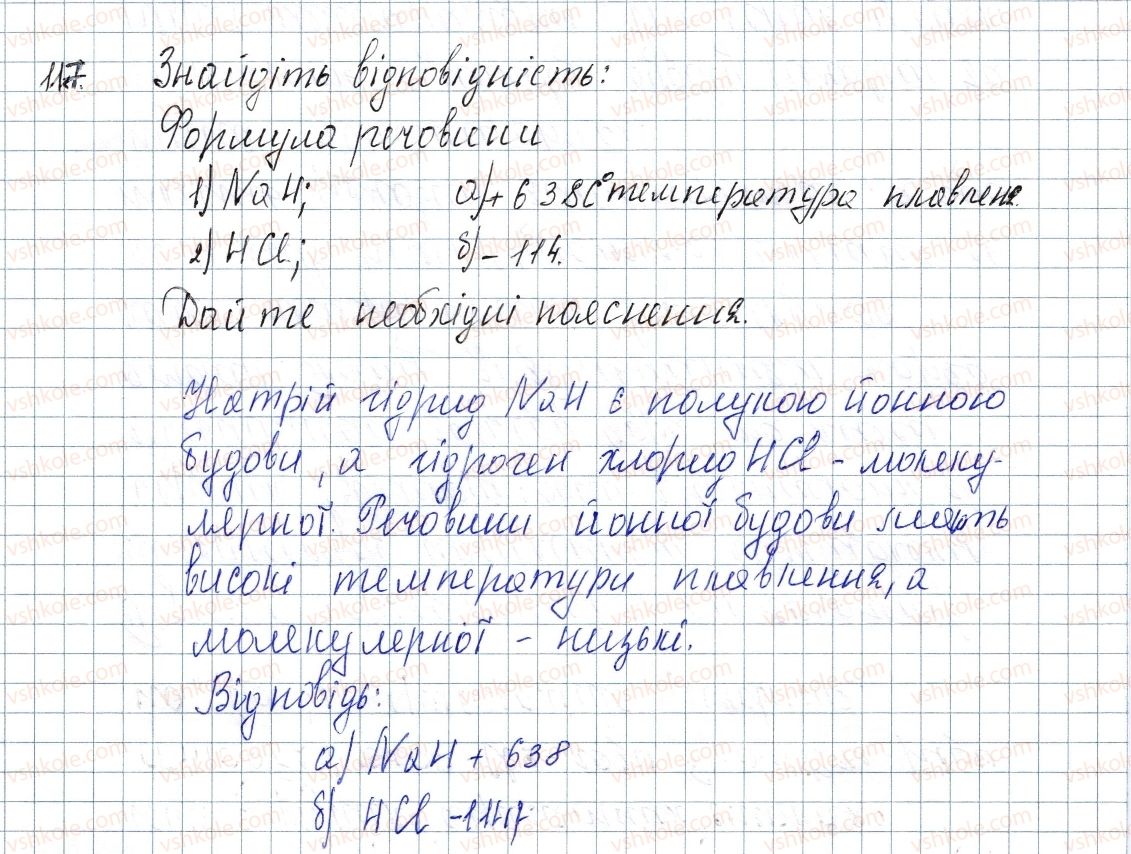 117. Знайдіть відповідність:
Формула речовини
1) NaH; а) + 638 C° температура плавленя.
2) HCl; б) - 114.
Дайте необхідні пояснення.
Натрій гідрид NaH є полукою йонною
будови, а гідроген хлорид HCl - молеку-
лярної. Речовини йонної будови мають
високі температури плавлення, а
молекулярної - низькі.
Відповідь:
а) NaH + 638
б) HCl - 114